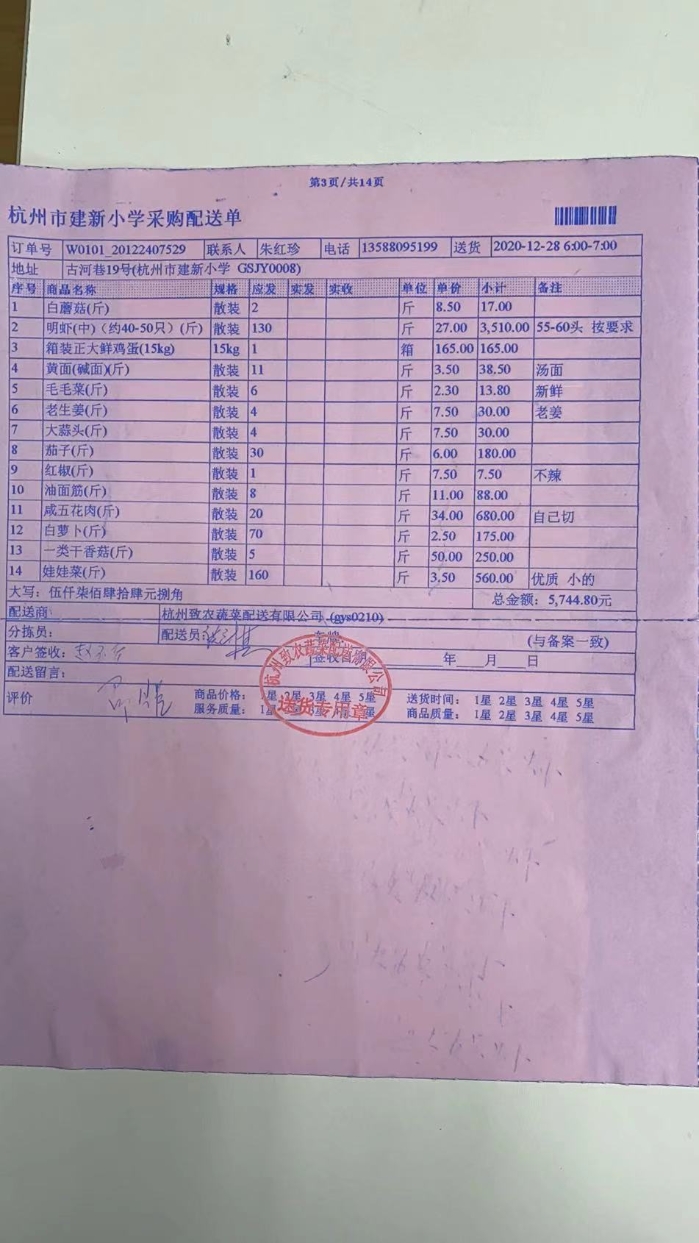 第3页/共14页
杭州市建新小学采购配送单
订单号 W0101_20122407529 联系人 朱红珍 电话 13588095199 送货 2020-12-28 6:00-7:00
地址 古河巷19号(杭州市建新小学 GSJY0008)
序号 商品名称 规格 应发 实发 实收 单位 单价 小计 备注
1 白蘑菇(斤) 散装 2 斤 8.50 17.00
2 明虾(中)(约40-50只)(斤) 散装 130 斤 27.00 3,510.00 55-60头 按要求
3 箱装正大鲜鸡蛋(15kg) 15kg 1 箱 165.00 165.00
4 黄面(碱面)(斤) 散装 11 斤 3.50 38.50 汤面
5 毛毛菜(斤) 散装 6 斤 2.30 13.80 新鲜
6 老生姜(斤) 散装 4 斤 7.50 30.00 老姜
7 大蒜头(斤) 散装 4 斤 7.50 30.00
8 茄子(斤) 散装 30 斤 6.00 180.00
9 红椒(斤) 散装 1 斤 7.50 7.50 不辣
10 油面筋(斤) 散装 8 斤 11.00 88.00
11 咸五花肉(斤) 散装 20 斤 34.00 680.00 自己切
12 白萝卜(斤) 散装 70 斤 2.50 175.00
13 一类干香菇(斤) 散装 5 斤 50.00 250.00
14 娃娃菜(斤) 散装 160 斤 3.50 560.00 优质 小的
大写: 伍仟柒佰肆拾肆元捌角 总金额: 5,744.80元
配送商 杭州致农蔬菜配送有限公司 (gys0210)
分拣员: 配送员 (与备案一致)
客户签收: 签收日期 年 月 日
配送留言:
评价 商品价格: 1星 2星 3星 4星 5星 送货时间: 1星 2星 3星 4星 5星
服务质量: 1星 2星 3星 4星 5星 商品质量: 1星 2星 3星 4星 5星
杭州致农蔬菜配送有限公司
送货专用章